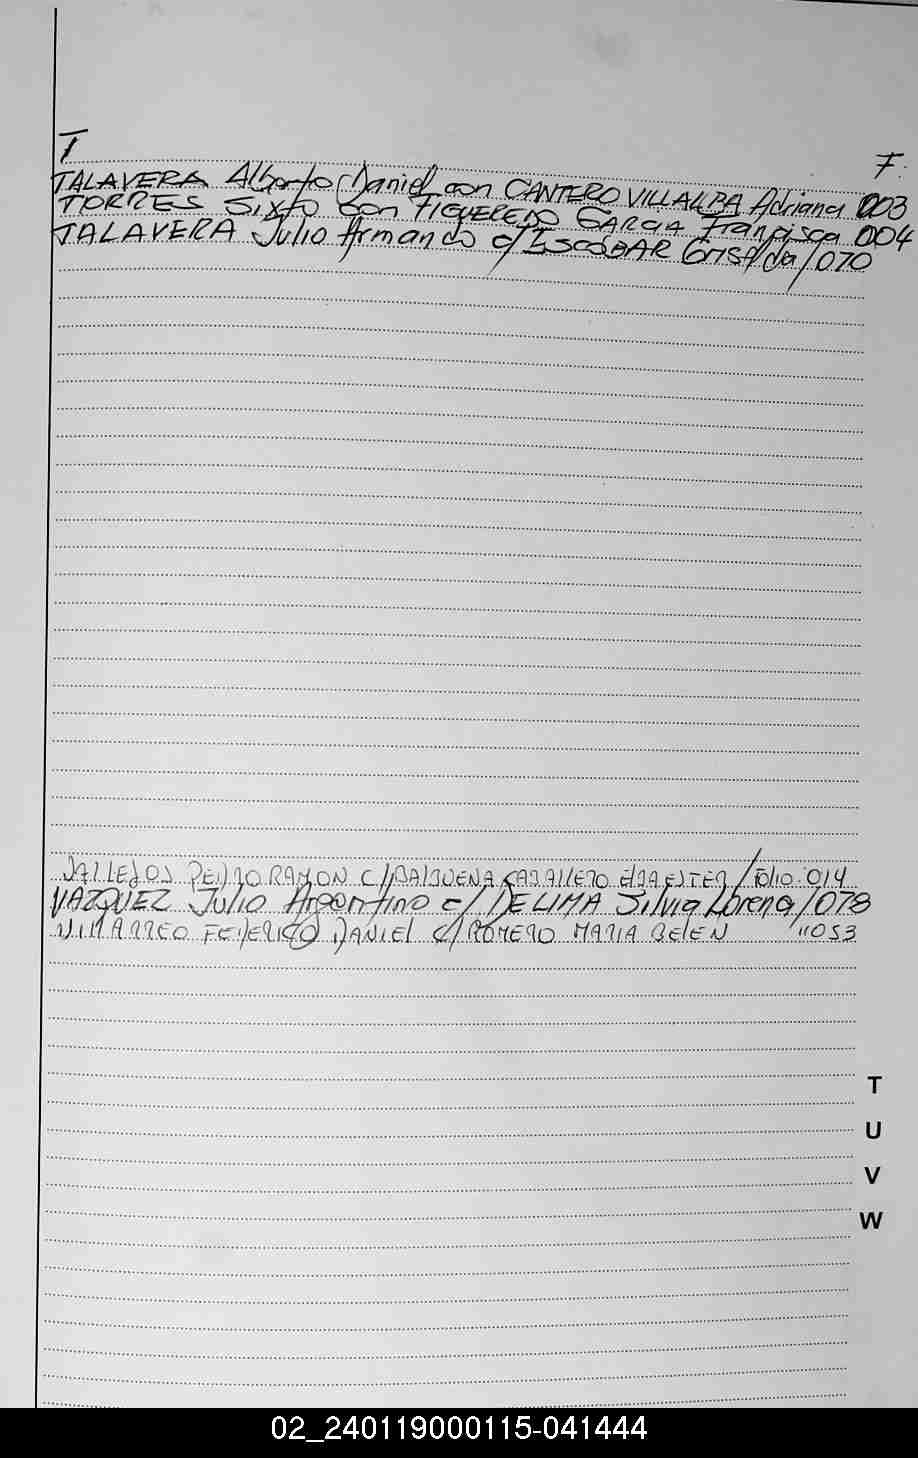 T
F.
TALAVERA Alberto Daniel con CANTERO VILLALBA Adriana 003
TORRES Sixto con FIGUEREDO GARCIA Francisca 004
TALAVERA Julio Armando c/ ESCOBAR Griselda/070
VALLEJOS PEDRO RAMON C/ BALBUENA CABALLERO ESTER/Folio 014
VAZQUEZ Julio Argentino c/ DE LIMA Silvia Lorena/078
FEDERICO DANIEL C/ ROMERO MARIA BELEN "053
T
U
V
W
02_240119000115-041444